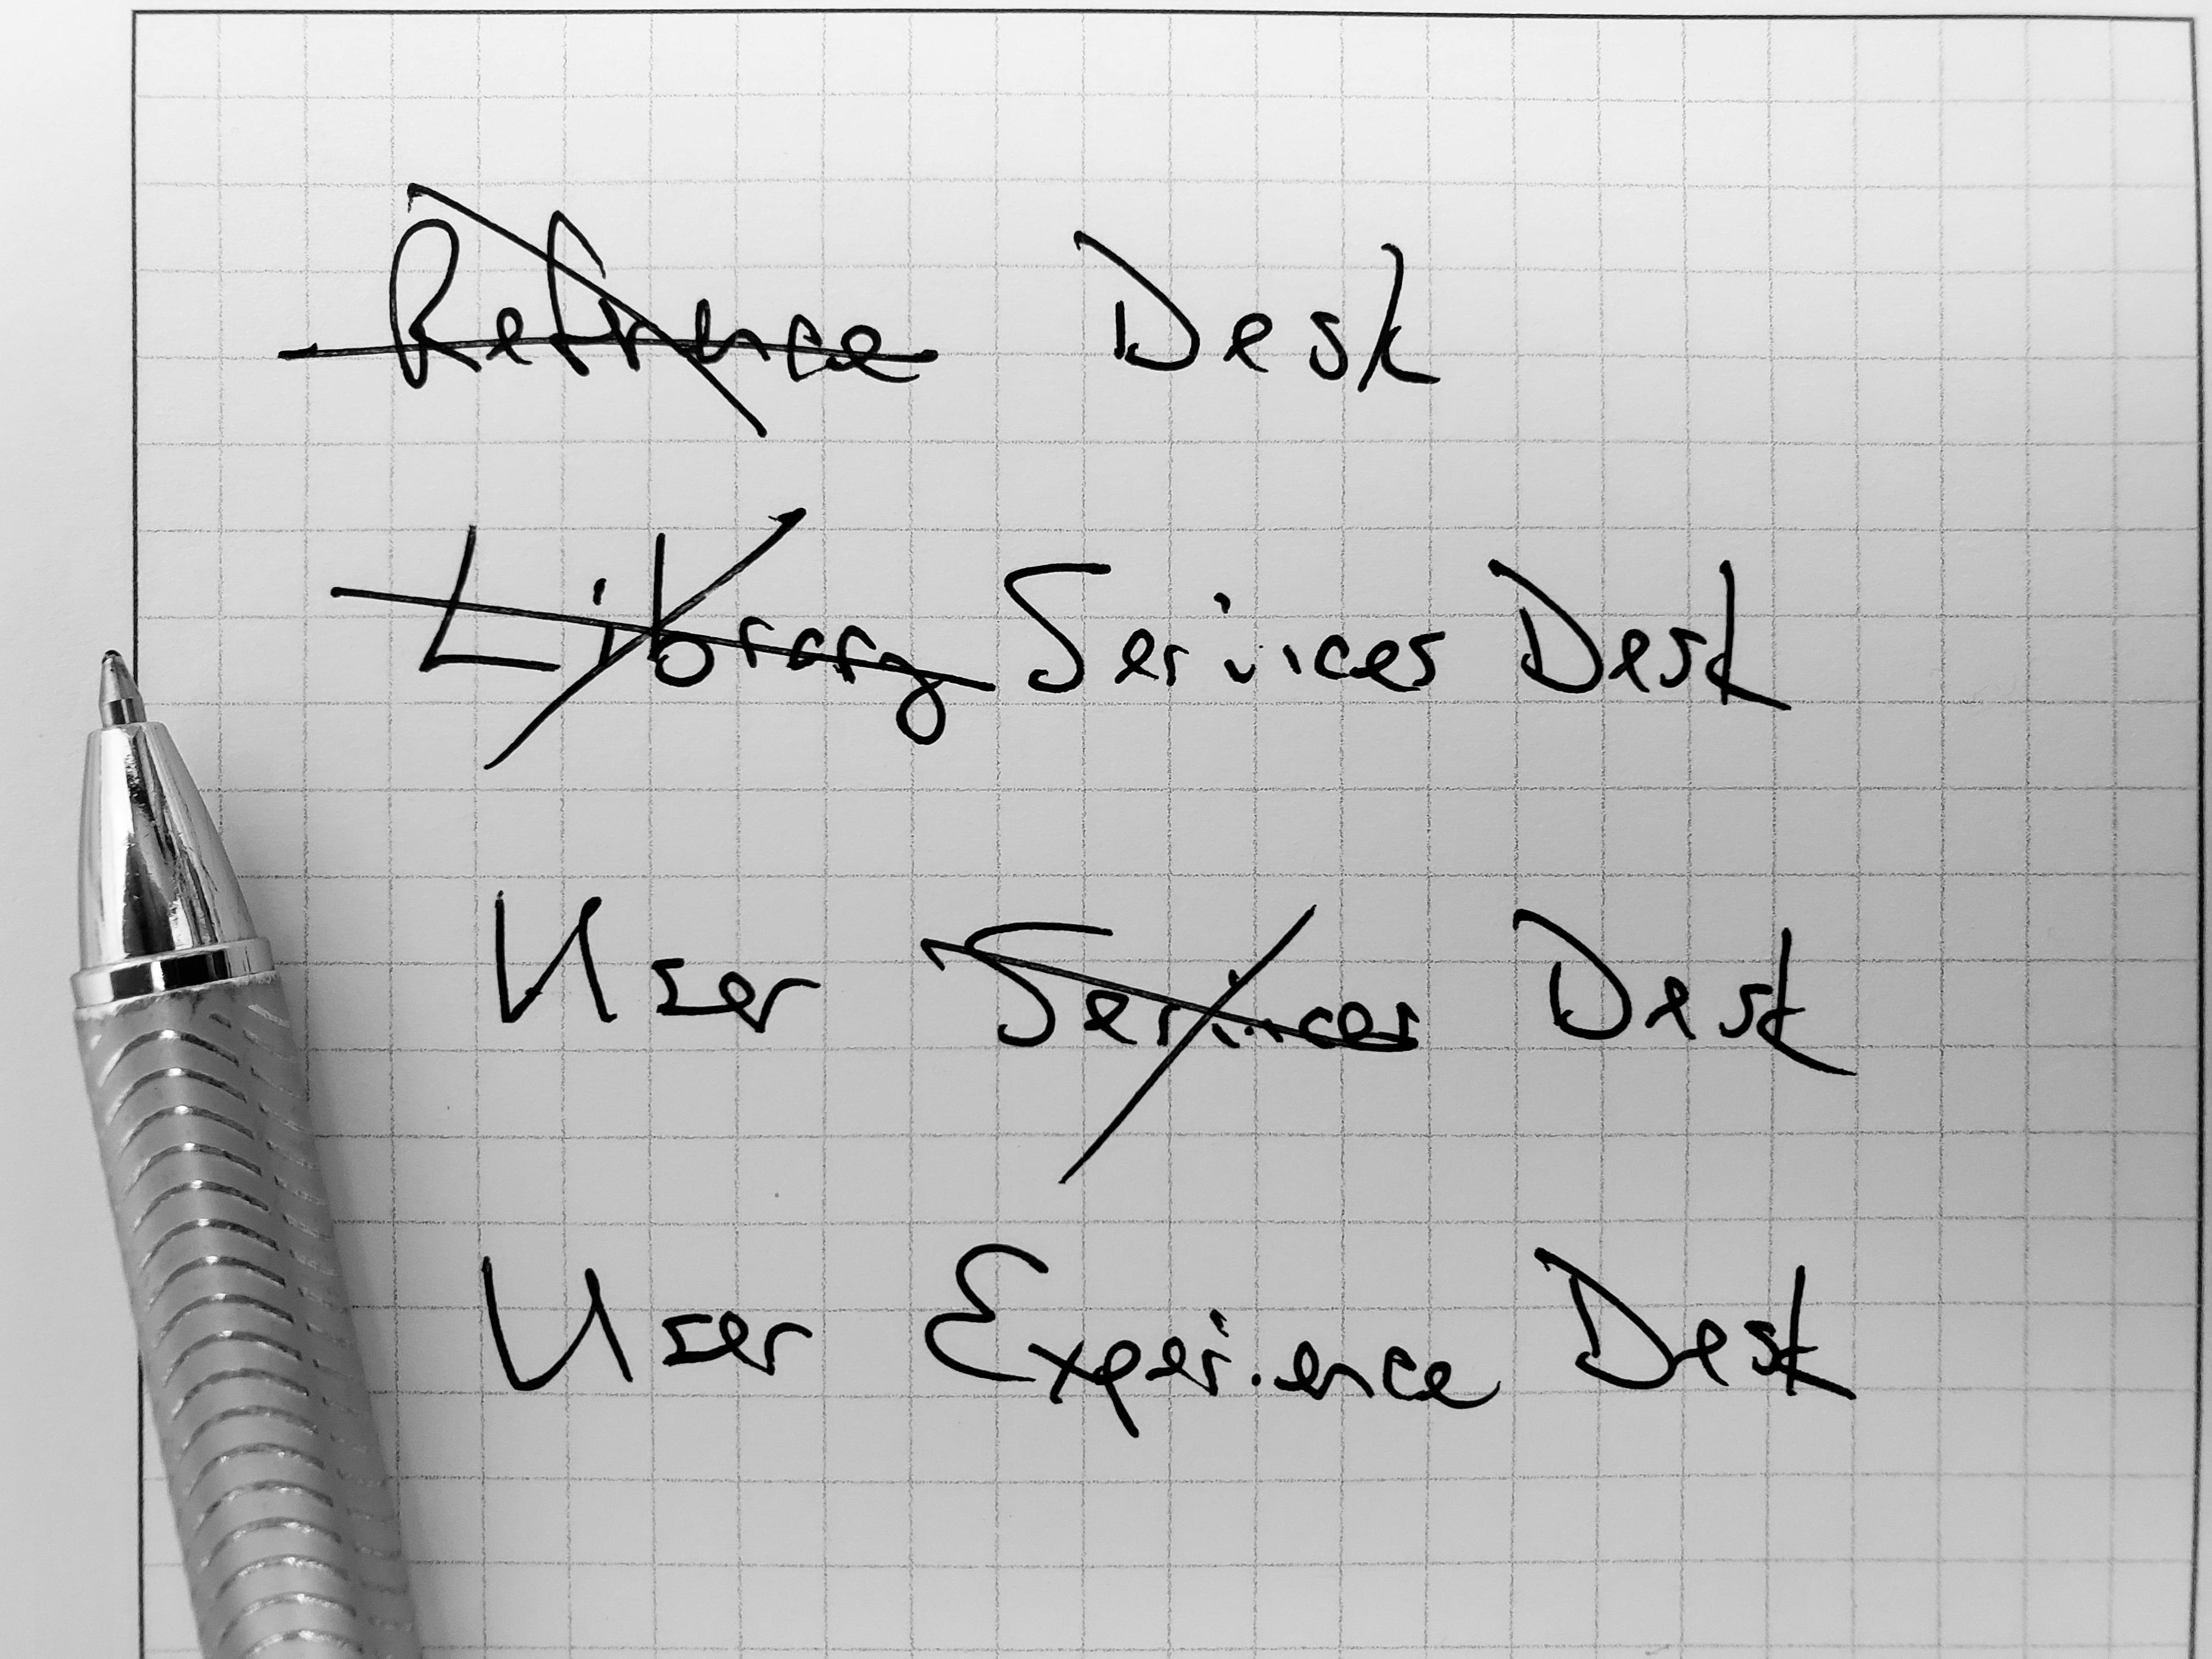 Refrence Desk
Library Services Desk
User Services Desk
User Experience Desk